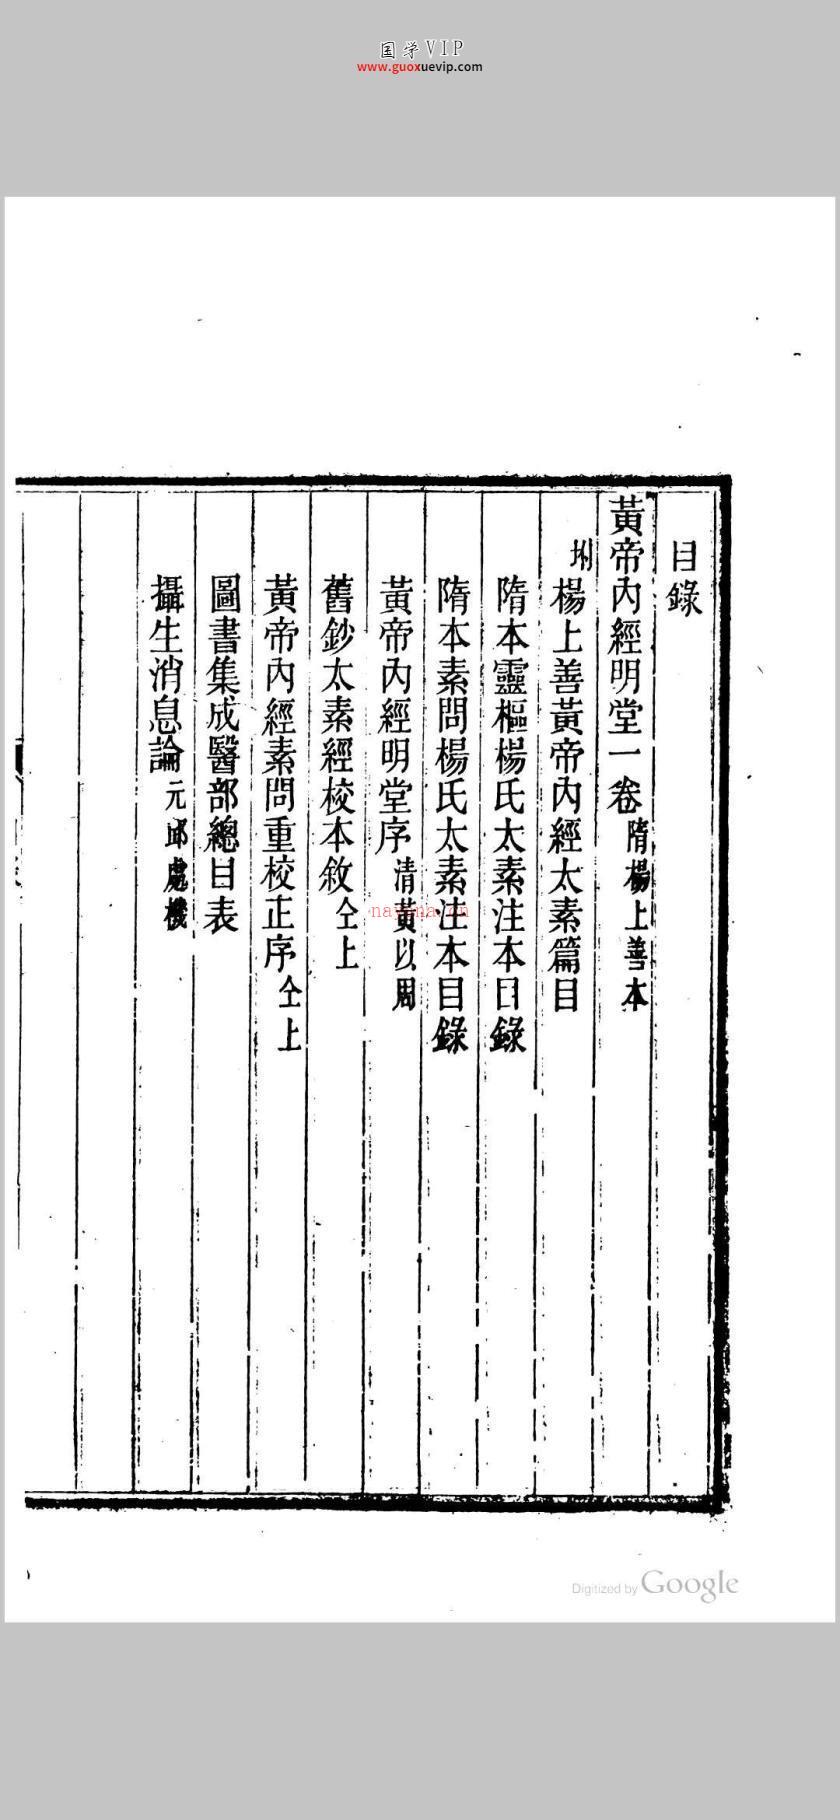 国学VIP
www.guoxuevip.com
目錄
黃帝內經明堂一卷 隋楊上善本
坿 楊上善黃帝內經太素篇目
隋本靈樞楊氏太素注本目錄
隋本素問楊氏太素注本目錄
黃帝內經明堂序 清黃以周
舊鈔太素經校本敘 仝上
黃帝內經素問重校正序 仝上
圖書集成醫部總目表
攝生消息論 元邱處機
nayona.cn
Digitized by Google